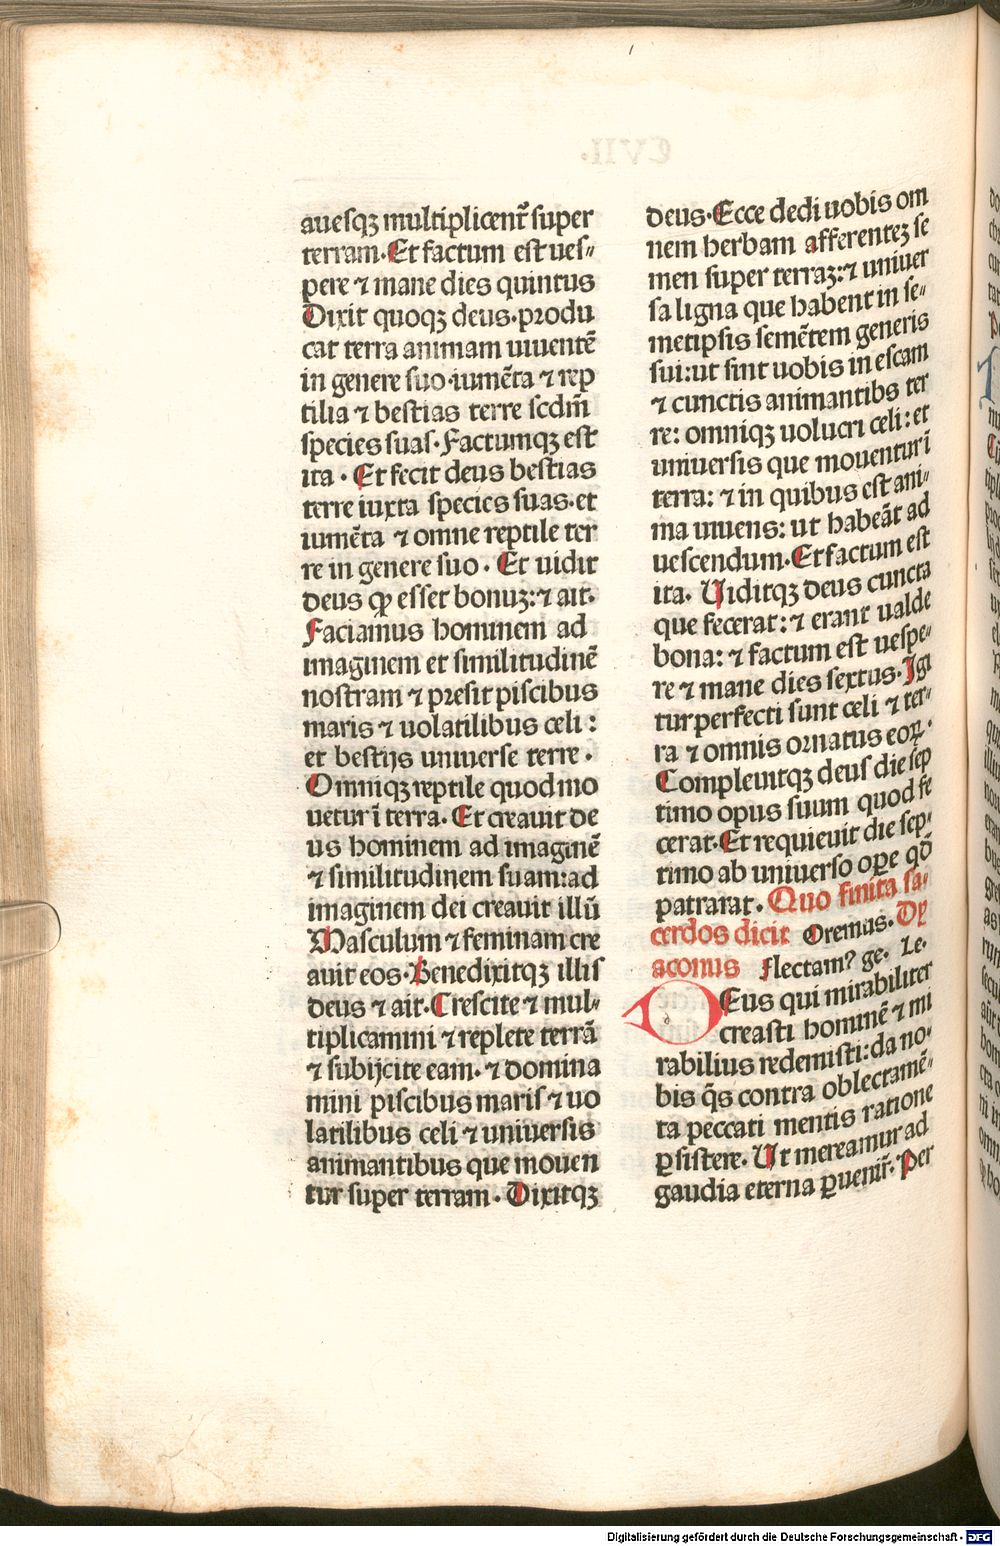 auesqꝫ multiplicent᷑ super
terram. Et factum est ues⸗
pere ⁊ mane dies quintus
Dixit quoqꝫ deus. produ
cat terra animam uiuentē
in genere suo. iumēta ⁊ rep
tilia ⁊ bestias terre scdm̄
species suas. Factumqꝫ est
ita. Et fecit deus bestias
terre iuxta species suas. et
iumēta ⁊ omne reptile ter
re in genere suo. Et uidit
deus ꝙ esset bonuꝫ: ⁊ ait.
Faciamus hominem ad
imaginem et similitudinē
nostram ⁊ presit piscibus
maris ⁊ uolatilibus celi:
et bestijs uniuerse terre.
Omniqꝫ reptile quod mo
uetur ī terra. Et creauit de
us hominem ad imaginē
⁊ similitudinem suam: ad
imaginem dei creauit illū
Masculum ⁊ feminam cre
auit eos. Benedixitqꝫ illis
deus ⁊ ait. Crescite ⁊ mul⸗
tiplicamini ⁊ replete terrā
⁊ subijcite eam. ⁊ domina
mini piscibus maris ⁊ uo
latilibus celi ⁊ uniuersis
animantibus que mouen
tur super terram. Dixitqꝫ
deus. Ecce dedi uobis om
nem herbam afferenteꝫ se
men super terraꝫ: ⁊ uniuer
sa ligna que habent in se⸗
metipsis semētem generis
sui: ut sint uobis in escam
⁊ cunctis animantibs ter
re: omniqꝫ uolucri celi: et
uniuersis que mouentur ī
terra: ⁊ in quibus est ani⸗
ma uiuens: ut habeāt ad
uescendum. Et factum est
ita. Uiditqꝫ deus cuncta
que fecerat: ⁊ erant ualde
bona: ⁊ factum est uespe⸗
re ⁊ mane dies sextus. Igi
tur perfecti sunt celi ⁊ ter⸗
ra ⁊ omnis ornatus eoꝝ.
Compleuitqꝫ deus die sep
timo opus suum quod fe
cerat. Et requieuit die sep⸗
timo ab uniuerso oꝑe qď
patrarat. Quo finita sa⸗
cerdos dicit Oremus. Dy
aconus Flectamꝰ ge. Le.
Deus qui mirabiliter
creasti hominē ⁊ mi
rabilius redemisti: da no⸗
bis q̄s contra oblectamē⸗
ta peccati mentis ratione
ꝑsistere. Ut mereamur ad
gaudia eterna ꝑuenir̄. Per
Digitalisierung gefördert durch die Deutsche Forschungsgemeinschaft - DFG